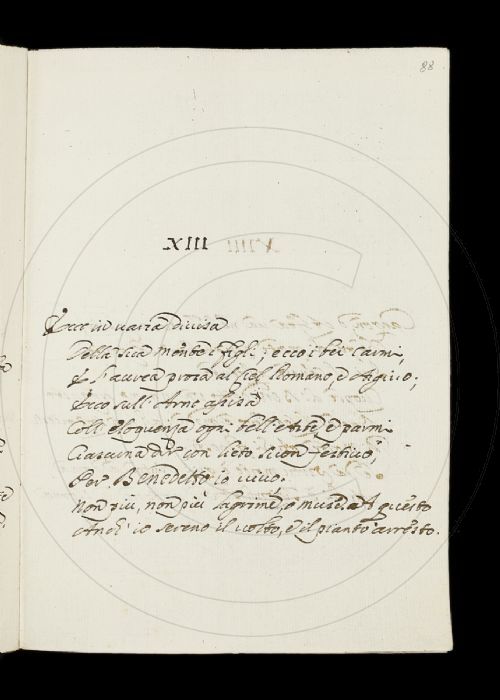 88
XIII
Ecco in varia divisa
Della sua mente i figli; ecco i bei carmi,
E l'aurea prosa al stel Romano, e Argivo;
Ecco sull' Arno
Coll' eloquenza ogni bell' Arte, e parmi
Ciascuna dir con lieto suon festivo,
Per Benedetto io vivo.
Non più, non più lagrime, o muse. A questo
Anch' io sereno il volto, e il pianto arresto.